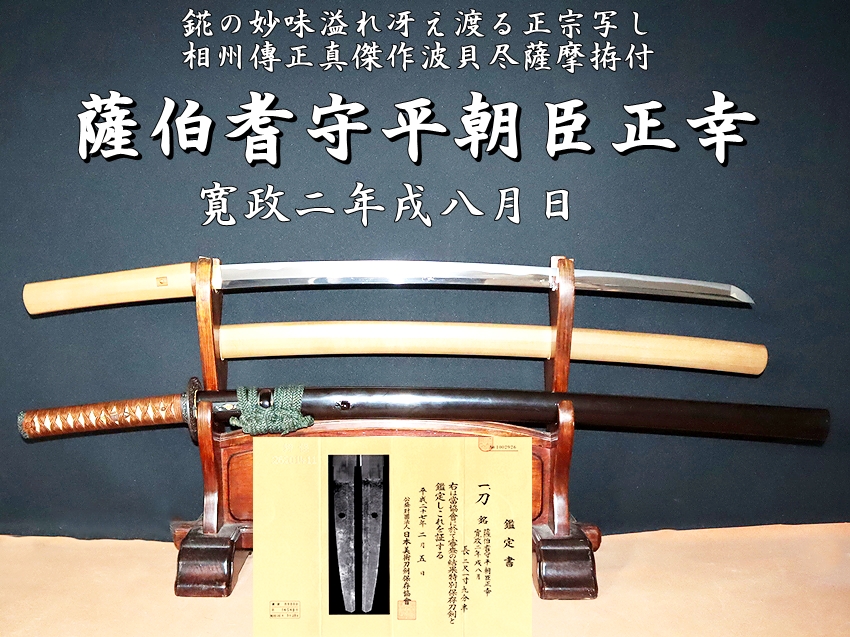 錵の妙味溢れ冴え渡る正宗写し
相州傳正真傑作波貝尽薩摩拵付
薩伯耆守平朝臣正幸
寛政二年戌八月日
鑑定書
一刀 銘 薩伯耆守平朝臣正幸
寛政二年戌八月
長二尺一寸九分半
右は當協會に於て審査の結果特別保存刀剣と
鑑定しこれを証する
平成二十七年二月五日
公益財団法人日本美術刀剣保存協會